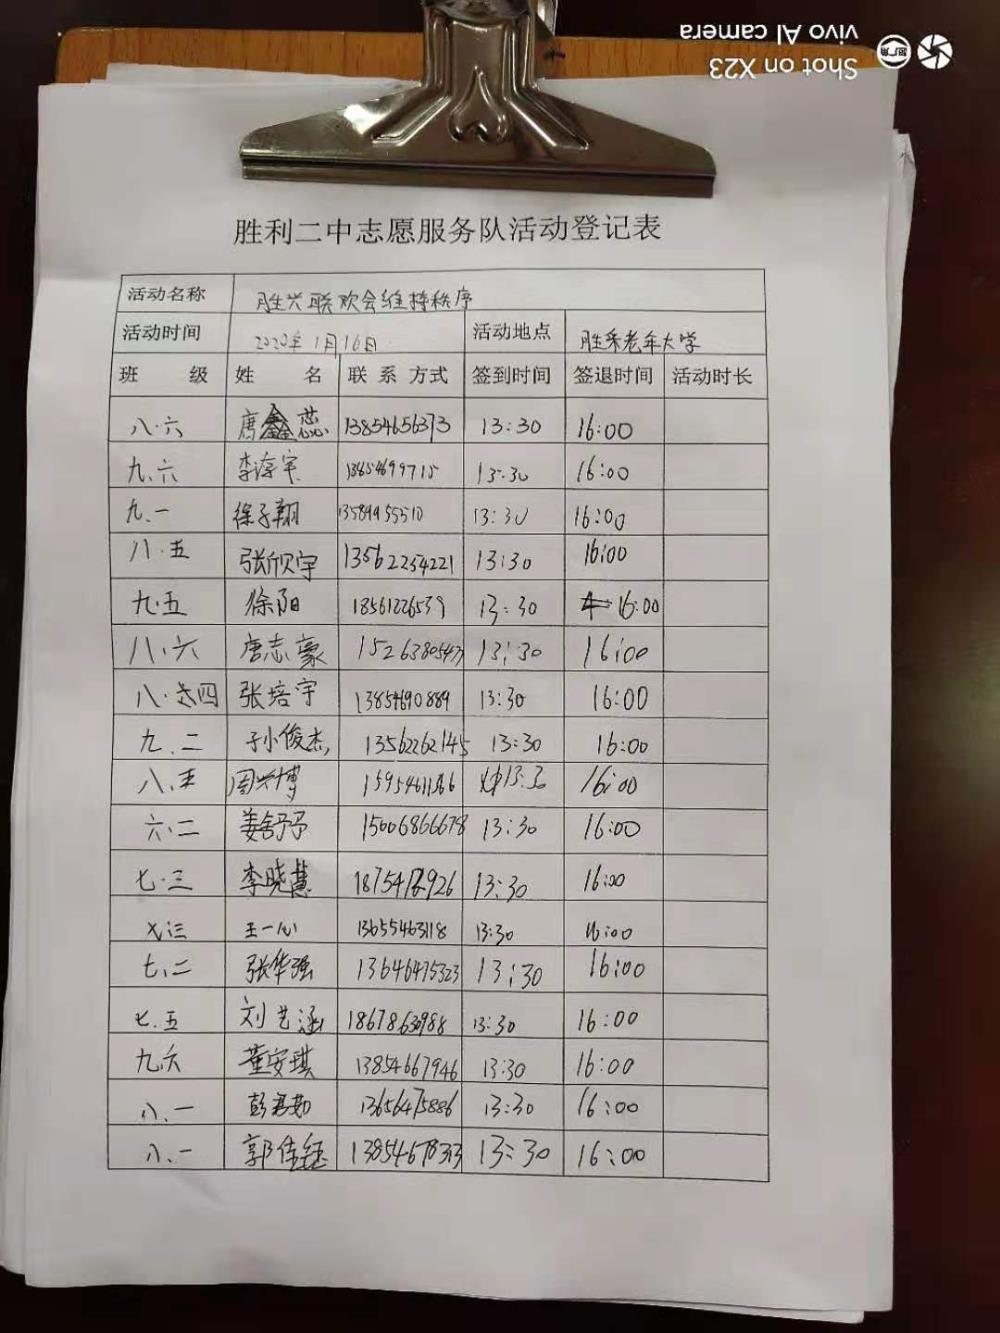 Shot on X23
vivo AI camera
胜利二中志愿服务队活动登记表
活动名称 胜兴联欢会维持秩序
活动时间 2020年1月16日 活动地点 胜采老年大学
班 级 姓 名 联 系 方式 签到时间 签退时间 活动时长
八.六 唐鑫蕊 13854656373 13:30 16:00
九.六 李淳宇 13854699715 13:30 16:00
九.一 徐子翔 13589955510 13:30 16:00
八.五 张欣宇 13562254221 13:30 16:00
九.五 徐阳 18561226539 13:30 16:00
八.六 唐志豪 13:30 16:00
八.四 张培宇 13854690889 13:30 16:00
九.二 子小俊杰 13562262145 13:30 16:00
八.五 周兴博 13:30 16:00
六.二 姜舒予 15006866678 13:30 16:00
七.三 李晓慧 13:30 16:00
七.三 王一心 13655463118 13:30 16:00
七.二 张华强 13646475323 13:30 16:00
七.五 刘艺涵 13:30 16:00
九六 董安琪 13854667946 13:30 16:00
八.一 彭君茹 13656475886 13:30 16:00
八.一 郭佳钰 13:30 16:00